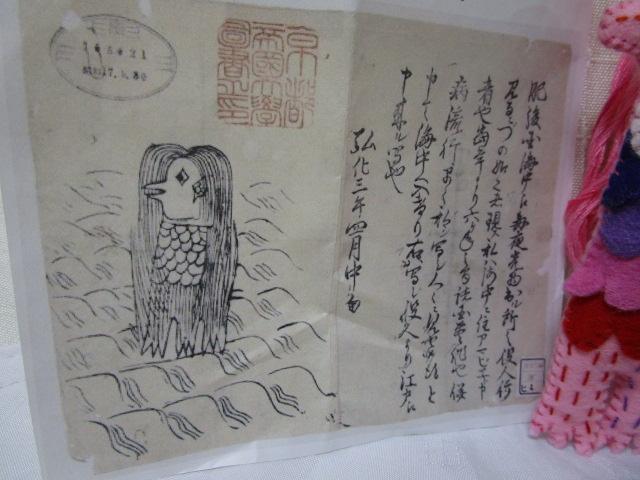 肥後国海中江毎夜光物出ル所之役人行
見るニづの如之者現ス私ハ海中ニ住アマビヱト申
者也当年より六ヶ年之間諸国豊作也併
病流行早々私シ写シ人々ニ見セ候得と
申て海中へ入けり右ハ写シ役人より江戸江
申来ル写也
弘化三年四月中旬
京都
帝国大学
図書之印